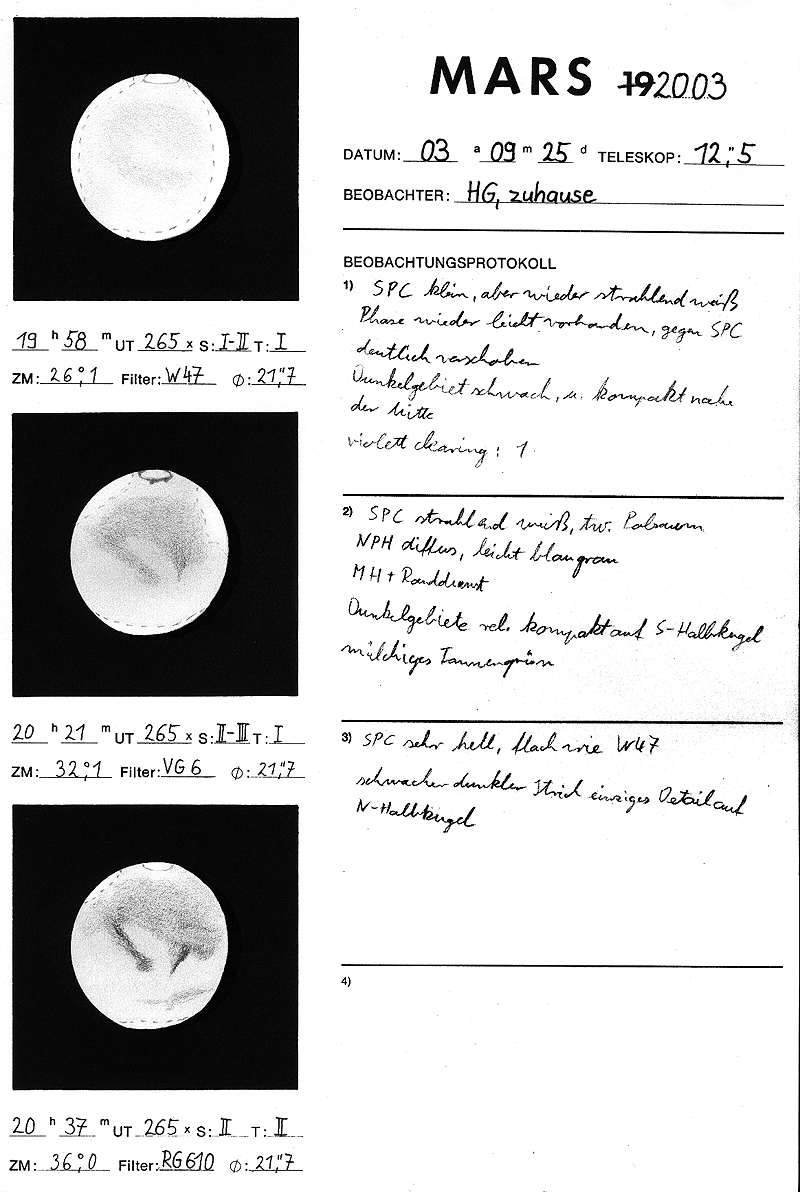 MARS 19 2003
DATUM: 03 a 09 m 25 d TELESKOP: 12,"5
BEOBACHTER: HG, zuhause
19 h 58 m UT 265 x S: I-II T: I
ZM: 26°,1 Filter: W47 Ø: 21,"7
BEOBACHTUNGSPROTOKOLL
1) SPC klein, aber wieder strahlend weiß
Phase wieder leicht vorhanden, gegen SPC
deutlich verschoben
Dunkelgebiet schwach, u. kompakt nahe
der Mitte
violett clearing: 1
20 h 21 m UT 265 x S: II-III T: I
ZM: 32°,1 Filter: VG6 Ø: 21,"7
2) SPC strahlend weiß, tw. Polsaum
NPH diffus, leicht blaugrau
MH + Randdunst
Dunkelgebiete rel. kompakt auf S-Halbkugel
milchiges Tannengrün
20 h 37 m UT 265 x S: II T: II
ZM: 36°,0 Filter: RG610 Ø: 21,"7
3) SPC sehr hell, flach wie W47
schwacher dunkler Strich einziges Detail auf
N-Halbkugel
4)